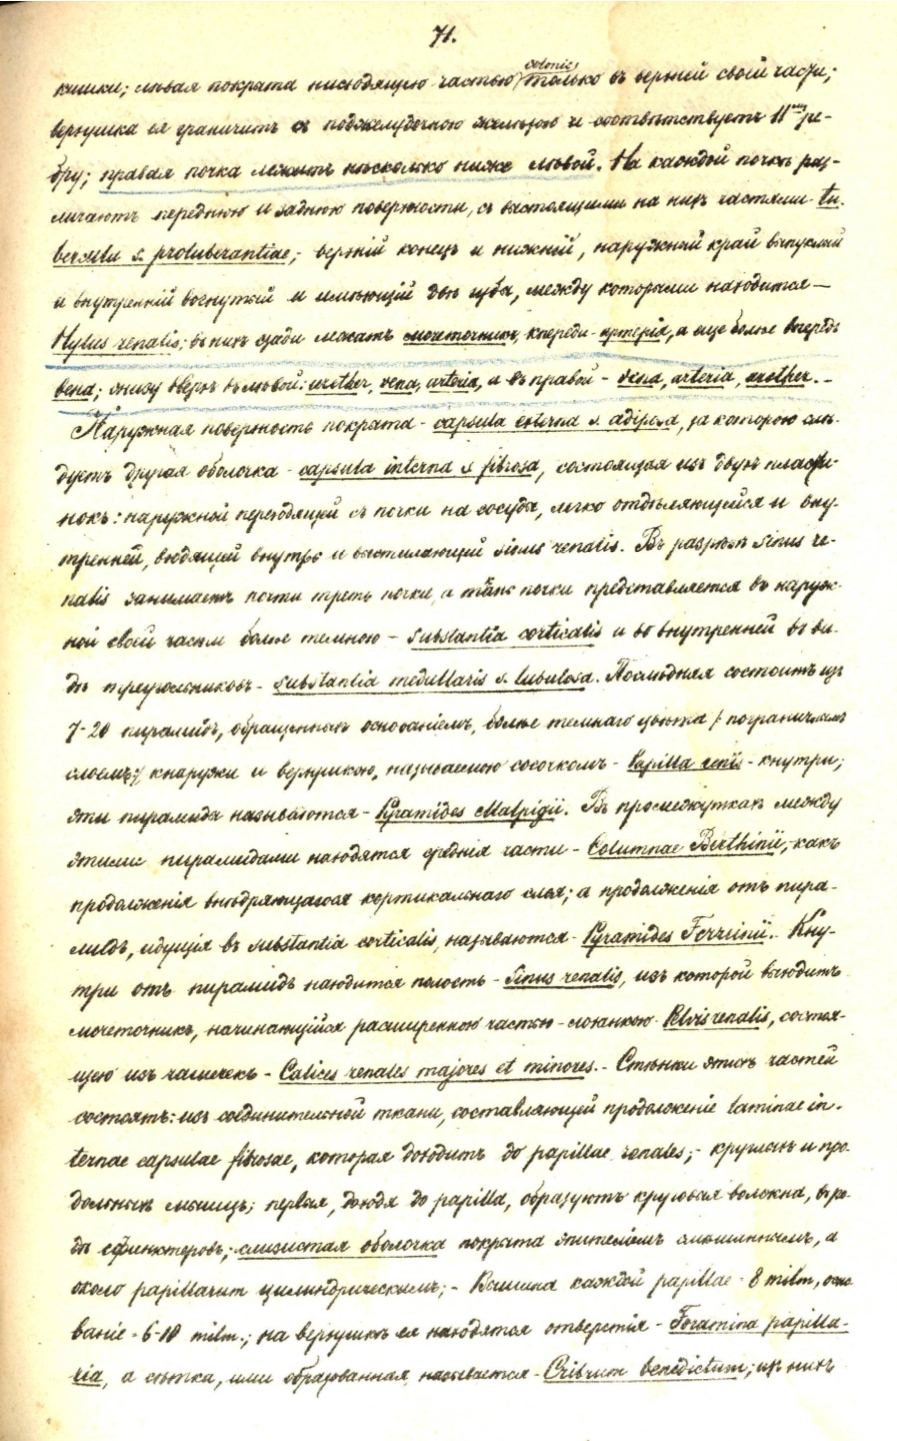 71.
кишки; лѣвая покрыта нисходящею частью colonis только въ верхней своей части;
верхушка ея граничитъ съ поджелудочною железою и соотвѣтствуетъ 11му ре-
бру; правая почка лежитъ нѣсколько ниже лѣвой. На каждой почкѣ раз-
личаютъ переднюю и заднюю поверхности, съ выстоящими на нихъ частями tu-
bercula s. protuberantiae; верхній конецъ и нижній, наружный край выпуклый
и внутренній вогнутый и имѣющій двѣ губы, между которыми находится —
Hylus renalis; въ нихъ сзади лежатъ мочеточникъ, кпереди - артерія, а еще болѣе впередъ
вена; снизу вверхъ въ лѣвой: urether, vena, arteria, и въ правой - vena, arteria, urether. -
Наружная поверхность покрыта - capsula externa s. adiposa, за которою слѣ-
дуетъ другая оболочка - capsula interna s. fibrosa, состоящая изъ двухъ пласти-
нокъ: наружной переходящей съ почки на сосуды, легко отдѣляющейся и вну-
тренней, входящей внутрь и выстилающей sinus renalis. Въ разрѣзѣ sinus re-
nalis занимаетъ почти треть почки, а тѣло почки представляется въ наруж-
ной своей части болѣе темною - substantia corticalis и во внутренней въ ви-
дѣ треугольниковъ - substantia medullaris s. tubulosa. Послѣдняя состоитъ изъ
7-20 пирамидъ, обращенныхъ основаніемъ, болѣе темнаго цвѣта /пограничнымъ
слоемъ/ кнаружи и верхушкою, называемою сосочкомъ - Papilla renis - кнутри;
эти пирамиды называются - Pyramides Malpigii. Въ промежуткахъ между
этими пирамидами находятся среднія части - Columnae Berthinii, какъ
продолженія внѣдряющагося кортикальнаго слоя; а продолженія отъ пира-
мидъ, идущія въ substantia corticalis, называются - Pyramides Ferreinii. Кну-
три отъ пирамидъ находится полость - Sinus renalis, изъ которой выходитъ
мочеточникъ, начинающійся расширенною частью - лоханкою - Pelvis renalis, состоя-
щею изъ чашечекъ - Calices renales majores et minores. - Стѣнки этихъ частей
состоятъ: изъ соединительной ткани, составляющей продолженіе laminae in-
ternae capsulae fibrosae, которая доходитъ до papillae renales; - круглыхъ и про-
дольныхъ мышцъ; первыя, доходя до papilla, образуютъ круговыя волокна, въ ро-
дѣ сфинктеровъ; слизистая оболочка покрыта эпителіемъ смѣшаннымъ, а
около papillarum цилиндрическимъ; - Вышина каждой papillae - 8 milm, осно-
ваніе - 6-10 milm.; на верхушкѣ ея находятся отверстія - Foramina papilla-
ria, а сѣтка, ими образованная, называется - Cribrum benedictum; изъ нихъ